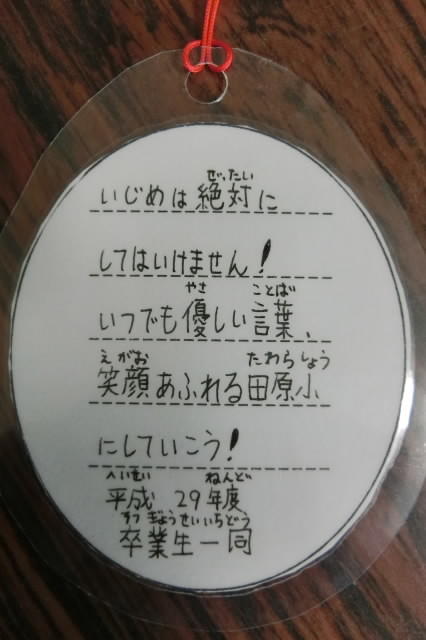 ぜったい
いじめは絶対に
してはいけません!
やさ ことば
いつでも優しい言葉、
えがお たわらしょう
笑顔あふれる田原小
にしていこう!
へいせい ねんど
平成 29年度
そつぎょうせいいちどう
卒業生一同